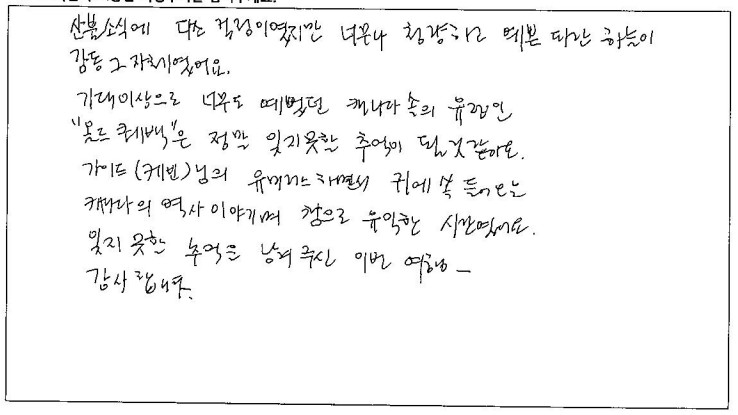 산불소식에 다소 걱정이였지만 너무나 청량하고 예쁜 파란 하늘이
감동 그 자체이였어요.
기대이상으로 너무도 예뻤던 캐나다 속의 유럽인
"올드 퀘백"은 정말 잊지못할 추억이 될것 같아요.
가이드(케빈)님의 유머러스하면서 귀에 쏙 들어오는
캐나다의 역사 이야기며 참으로 유익한 시간였어요.
잊지 못할 추억을 남겨 주신 이번 여행_
감사합니다.